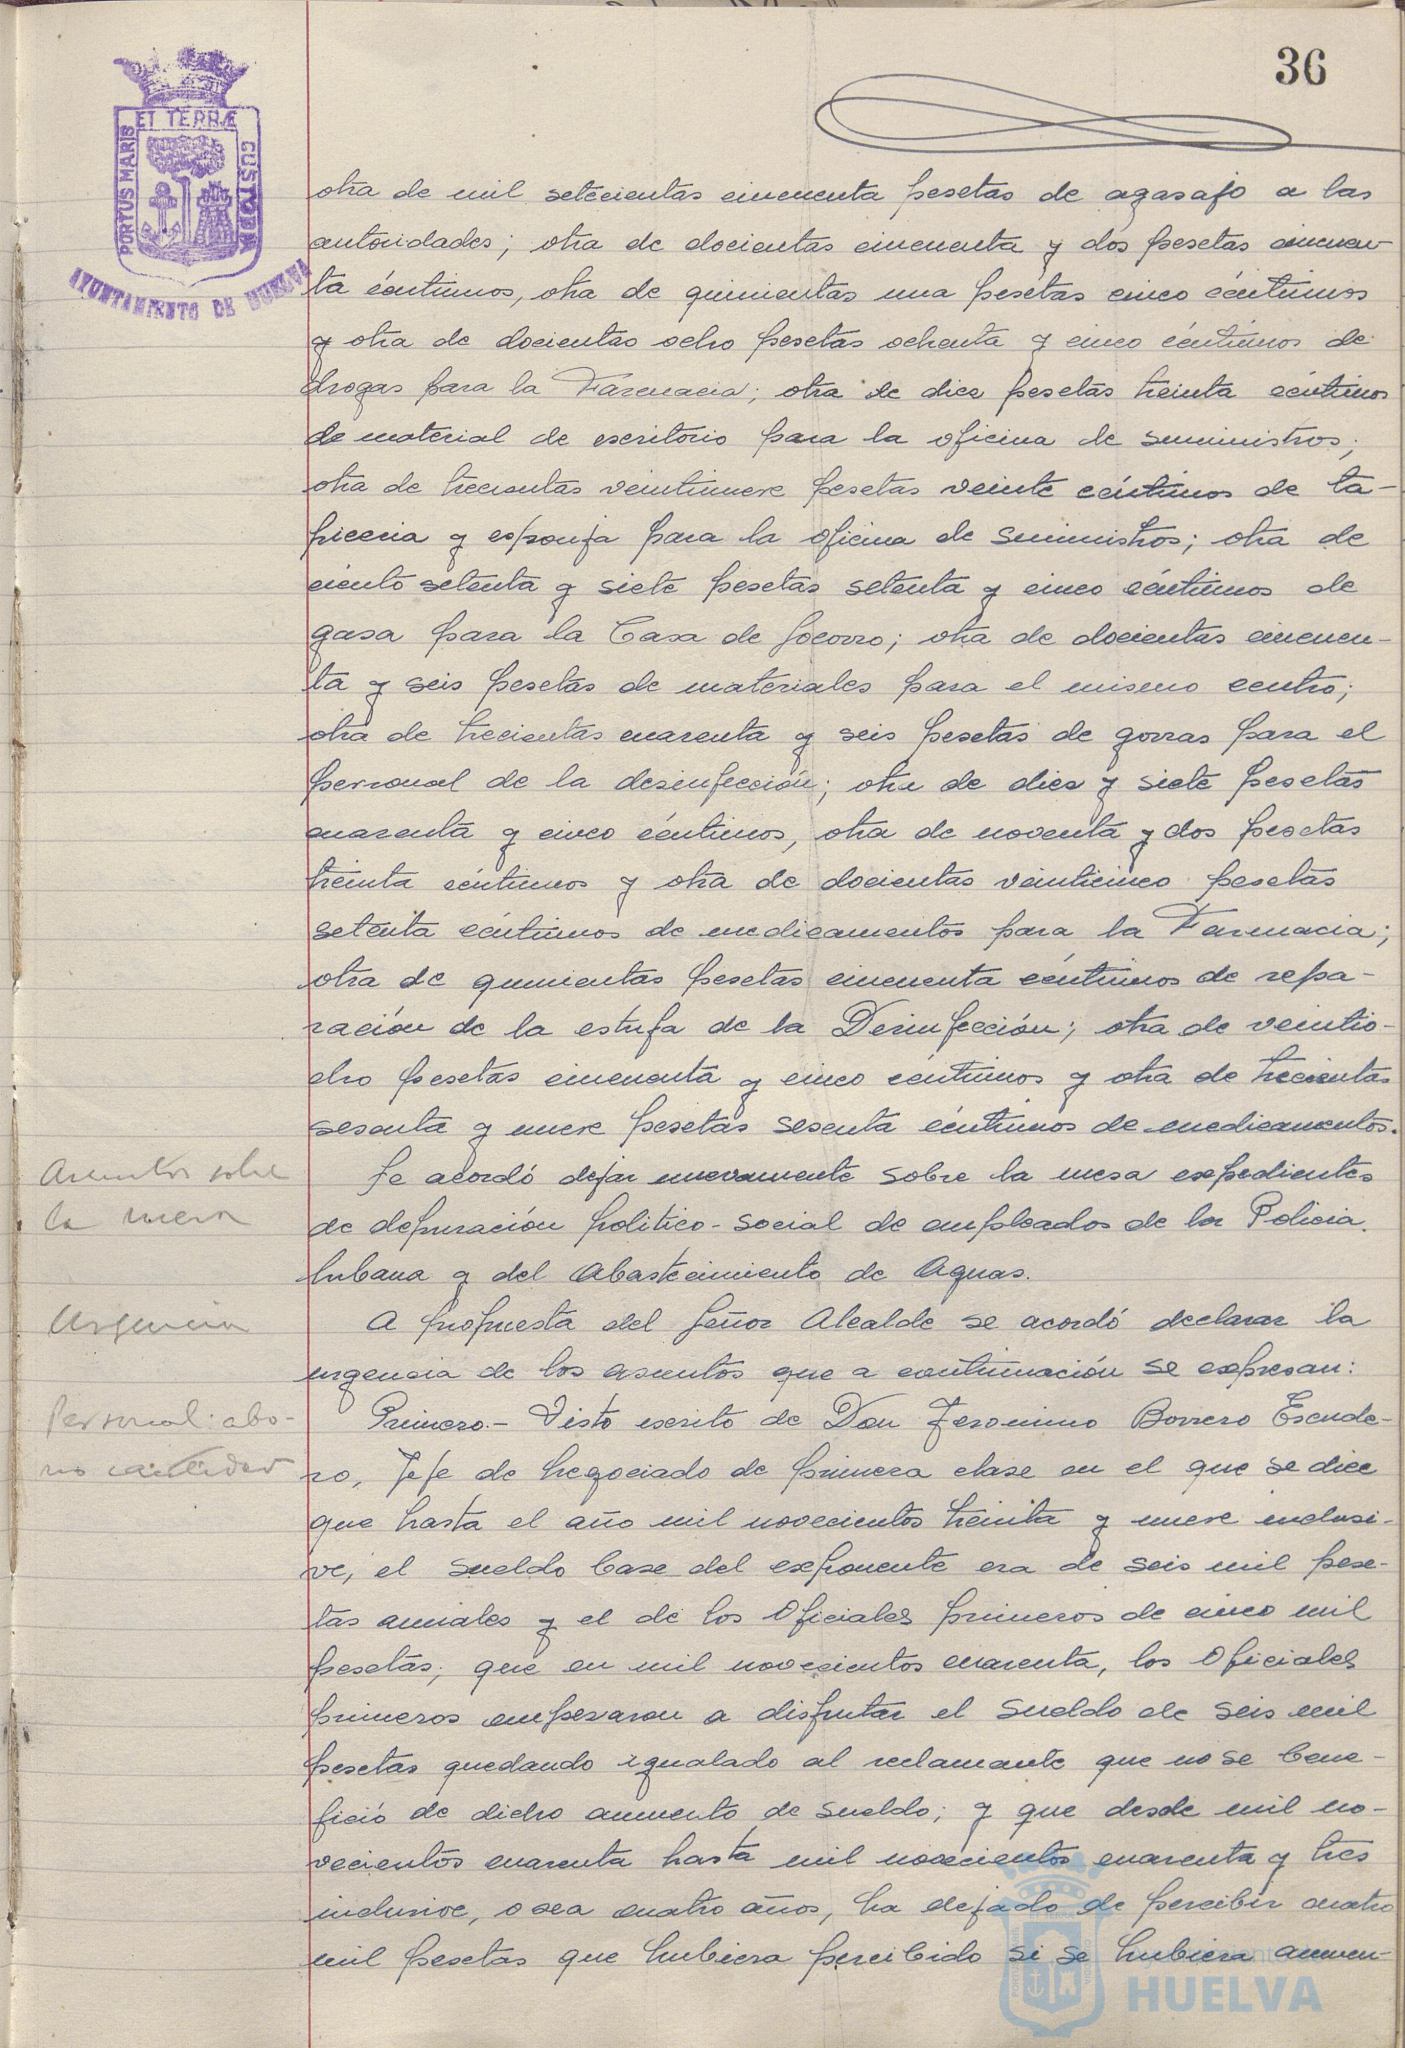 36
PORTUS MARIS
ET TERRÆ
CUSTODIA
AYUNTAMIENTO DE HUELVA
otra de mil setecientas cincuenta pesetas de agasajo a las
autoridades; otra de docientas cincuenta y dos pesetas cincuen-
ta céntimos, otra de quinientas una pesetas cinco céntimos
y otra de docientas ocho pesetas ochenta y cinco céntimos de
drogas para la Farmacia; otra de diez pesetas treinta céntimos
de material de escritorio para la oficina de suministros;
otra de trecientas veintinueve pesetas veinte céntimos de ta-
piceria y esponja para la oficina de suministros; otra de
ciento setenta y siete pesetas setenta y cinco céntimos de
gasa para la Casa de Socorro; otra de docientas cincuen-
ta y seis pesetas de materiales para el mismo centro;
otra de trecientas cuarenta y seis pesetas de gorras para el
personal de la desinfección; otra de diez y siete pesetas
cuarenta y cinco céntimos, otra de noventa y dos pesetas
treinta céntimos y otra de docientas veinticinco pesetas
setenta céntimos de medicamentos para la Farmacia;
otra de quinientas pesetas cincuenta céntimos de repa-
ración de la estufa de la Desinfección; otra de veintio-
cho pesetas cincuenta y cinco céntimos y otra de trecientas
sesenta y nueve pesetas sesenta céntimos de medicamentos.
Asuntos sobre
la mesa
Se acordó dejar nuevamente sobre la mesa expedientes
de depuración politico-social de empleados de la Policia
Urbana y del Abastecimiento de Aguas.
Urgencia
A propuesta del Señor Alcalde se acordó declarar la
urgencia de los asuntos que a continuación se expresan:
Personal: abo-
no cantidad
Primero.- Visto escrito de Don Jeronimo Borrero Escude-
ro, Jefe de Negociado de primera clase en el que se dice
que hasta el año mil novecientos treinta y nueve inclusi-
ve, el sueldo base del exponente era de seis mil pese-
tas anuales y el de los Oficiales primeros de cinco mil
pesetas; que en mil novecientos cuarenta, los Oficiales
primeros empezaron a disfrutar el sueldo de seis mil
pesetas quedando igualado al reclamante que no se bene-
fició de dicho aumento de sueldo; y que desde mil no-
vecientos cuarenta hasta mil novecientos cuarenta y tres
inclusive, o sea cuatro años, ha dejado de percibir cuatro
mil pesetas que hubiera percibido si se hubiera aumen-
HUELVA